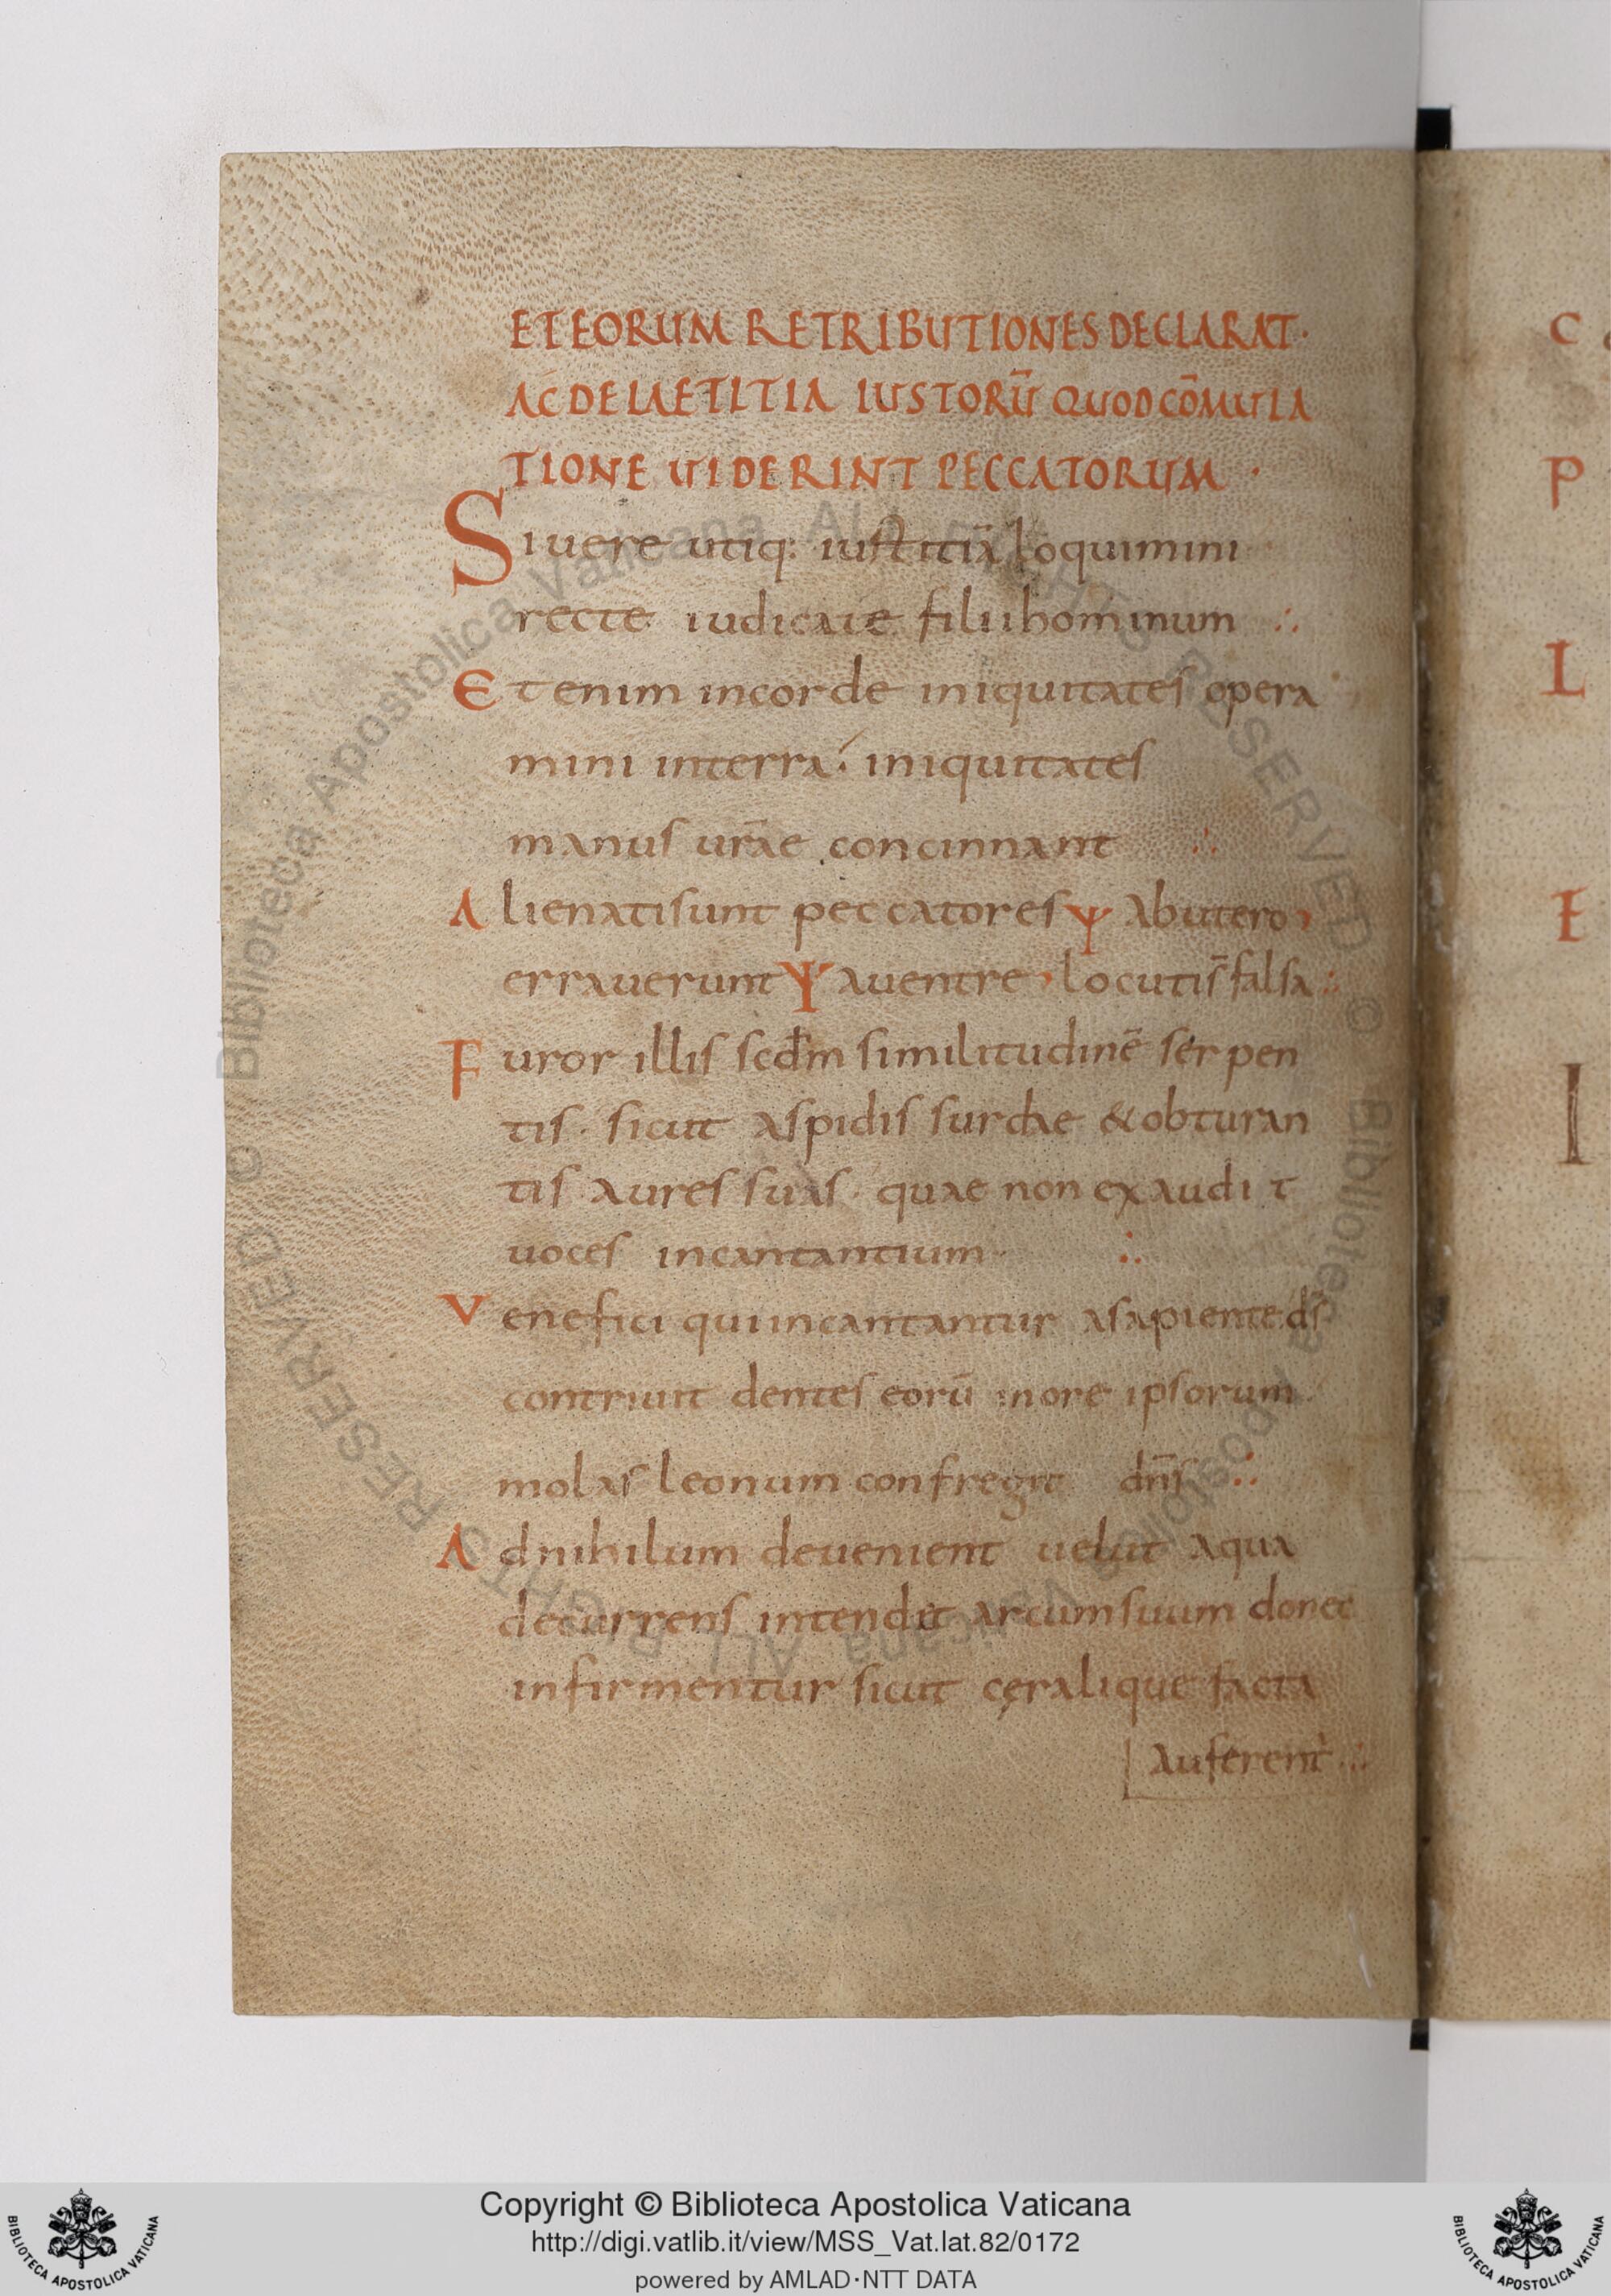 ETEORUM RETRIBUTIONES DECLARAT·
AC DE LAETITIA IUSTORŪ QUOD CŌMUTA
TIONE UIDERINT PECCATORUM ·
Si uere utiq: iustitiā loquimini
recte iudicate filii hominum ∴
Etenim in corde iniquitates opera
mini in terra: iniquitates
manus ur̄ae concinnant ∴
Alienati sunt peccatores Ψ ab utero,
errauerunt Ψ a uentre, locuti s̄ falsa ∴
Furor illis scd̄m similitudinē serpen
tis · sicut aspidis surdae & obturan
tis aures suas · quae non exaudit
uoces incantantium · ∴
Venefici qui incantantur a sapiente. d̄s
contriuit dentes eorū in ore ipsorum
molas leonum confregit dn̄s ∴
Ad nihilum deuenient uelut aqua
decurrens intendit arcum suum donec
infirmentur sicut cęra lique facta
auferent᾿ ∴
C
P
L
E
I
Biblioteca Apostolica Vaticana ALL RIGHTS RESERVED © Biblioteca Apostolica Vaticana ALL RIGHTS RESERVED ©
Copyright © Biblioteca Apostolica Vaticana
http://digi.vatlib.it/view/MSS_Vat.lat.82/0172
powered by AMLAD·NTT DATA
BIBLIOTECA APOSTOLICA VATICANA
BIBLIOTECA APOSTOLICA VATICANA